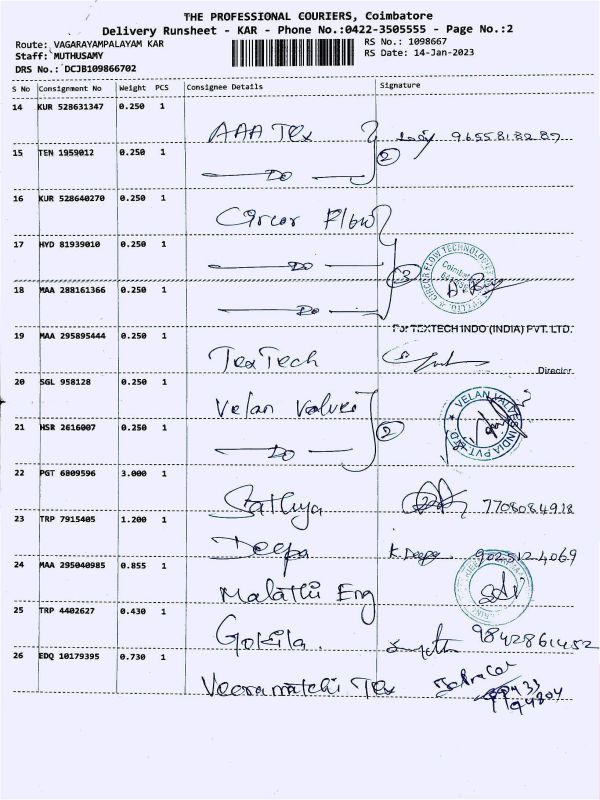 THE PROFESSIONAL COURIERS, Coimbatore
Delivery Runsheet - KAR - Phone No.:0422-3505555 - Page No.:2
Route: VAGARAYAMPALAYAM KAR
RS No.: 1098667
Staff: MUTHUSAMY
RS Date: 14-Jan-2023
DRS No.: DCJB109866702
S No Consignment No Weight PCS Consignee Details Signature
14 KUR 528631347 0.250 1
AAA Tex 9655818287
15 TEN 1959012 0.250 1
2
Do
16 KUR 528640270 0.250 1
Circor Flow
17 HYD 81939010 0.250 1
Do 3
CIRCOR FLOW TECHNOLOGIES
18 MAA 288161366 0.250 1
Do
For TEXTECH INDO (INDIA) PVT. LTD.
19 MAA 295895444 0.250 1
TexTech
Director
20 SGL 958128 0.250 1
Velan Valves
VELAN VALVES INDIA PVT. LTD.
21 HSR 2616007 0.250 1
2
Do
22 PGT 6809596 3.000 1
Sathya 7708084918
23 TRP 7915405 1.200 1
Deepa K. Deepa 9025124069
24 MAA 295040985 0.855 1
Malathi Eng
25 TRP 4402627 0.430 1
Gokila. 9842861452
26 EDQ 10179395 0.730 1
Veeramatchi Tex